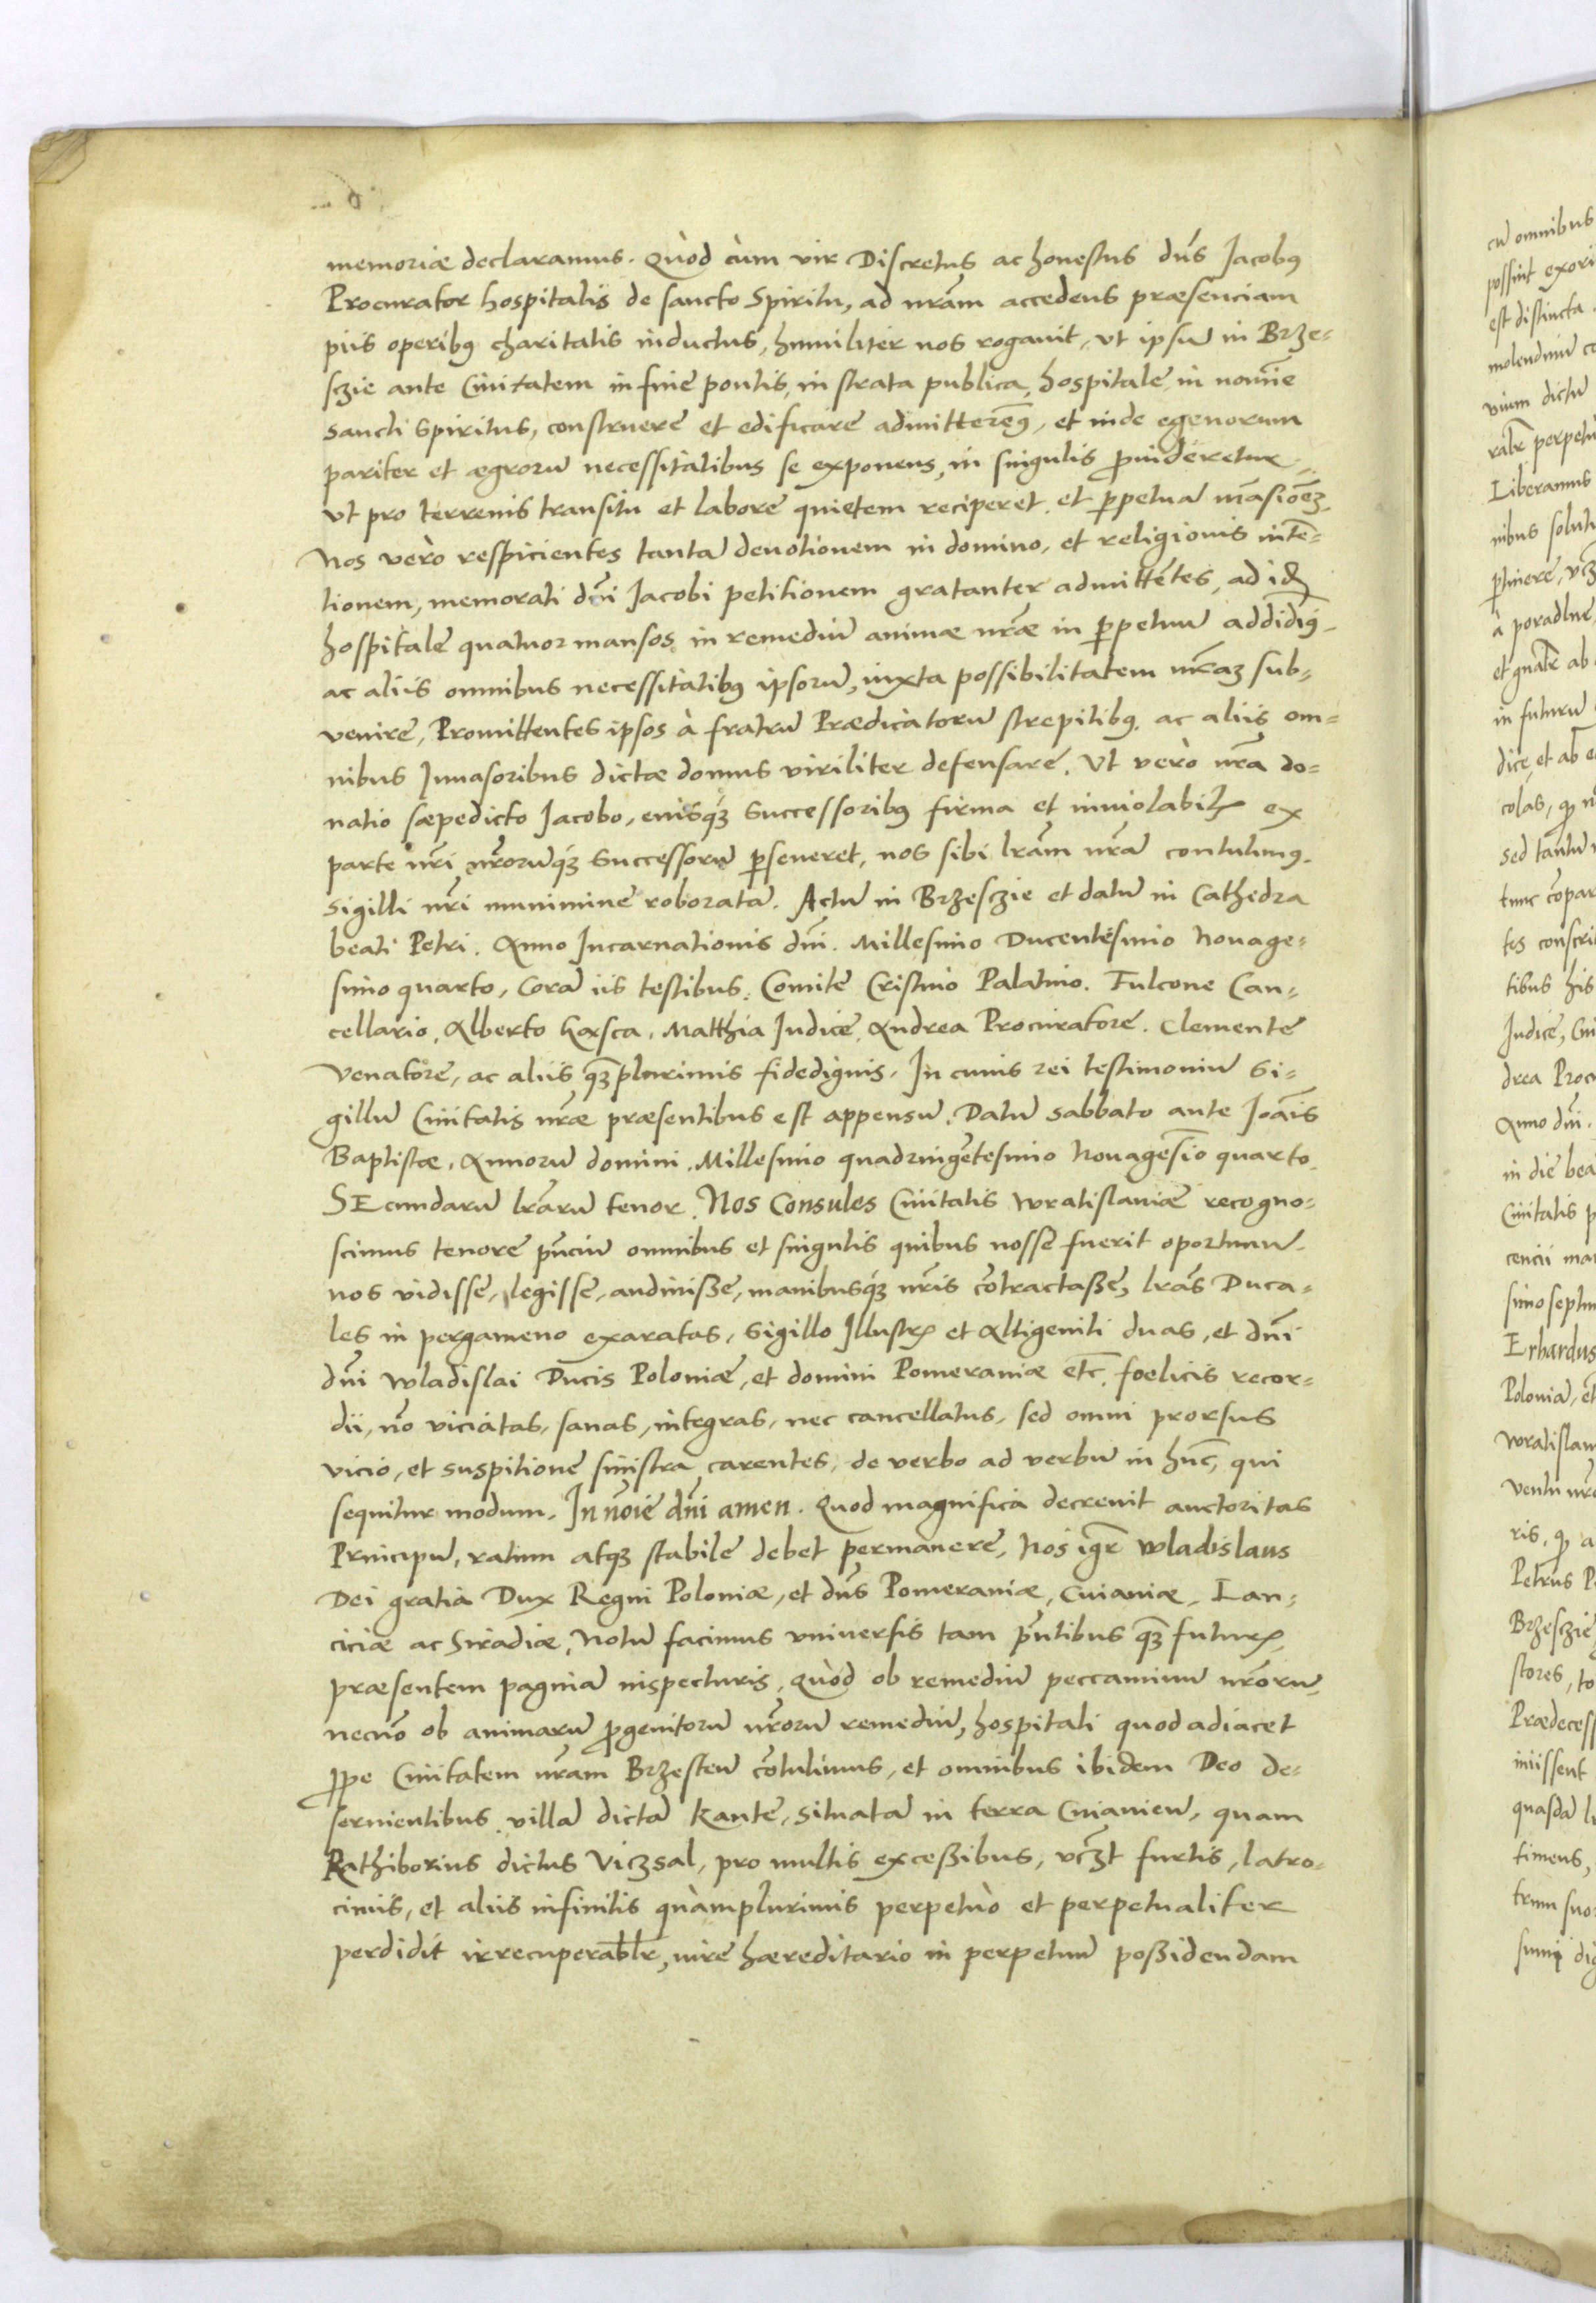 memoriæ declaramus. Quòd cùm vir Discretus ac honestus dn̄s Jacobꝰ
Procurator hospitalis de sancto Spiritu, ad nr̄am accedens præsenciam
piis operibꝰ charitatis inductus, humiliter nos rogauit, vt ipsū in Brze-
sczie ante Ciuitatem in fine pontis, in strata publica, hospitale in nomīe
sancti Spiritus, construere et edificare admitterem̄ꝰ, et inde egenorum
pariter et ægrorū necessitatibus se exponens, in singulis ꝓuideretur
vt pro terrenis transitu et labore quietem reciperet, et ꝑpetuā mãsiōeꝫ
Nos verò respicientes tantā deuotionem in domino, et religionis intē-
tionem, memorati dn̄i Jacobi petitionem gratanter admittẽtes, ad id
hospitale quatuor mansos in remediū animæ nr̄æ in ꝑpetuū addidimꝰ
ac aliis omnibus necessitatibꝰ ipsorū, iuxta possibilitatem nr̄aꝫ sub-
uenire, Promittentes ipsos à fratrū Prædicatorū strepitibꝰ, ac aliis om-
nibus Inuasoribus dictæ domus viriliter defensare. Vt verò nr̄a do-
natio sæpedicto Jacobo, euisqꝫ Successoribꝰ firma et inuiolabilꝭ ex
parte nr̄i nr̄orumqꝫ Successorū ꝑseueret, nos sibi lr̄am nr̄ā contulimꝰ,
sigilli nr̄i munimine roboratā. Actū in Brzesczie et datū in Cathedra
beati Petri. Anno Incarnationis dn̄i. Millesimo Ducentesimo Nonage-
simo quarto, Corā iis testibus. Comite Cristino Palatino. Fulcone Can-
cellario, Alberto Kasca, Matthia Judice, Andrea Procuratore. Clemente
Venatore, ac aliis qꝫplurimis fidedignis. In cuius rei testimoniū Si-
gillū Ciuitatis nr̄æ præsentibus est appensū. Datū sabbato ante Joãis
Baptistæ, Annorū domini. Millesimo quadringẽtesimo Nonagesīo quarto.
SEcundarū lr̄arū tenor. Nos Consules Ciuitatis Wratislauiæ recogno-
scimus tenore pn̄ciū omnibus et singulis quibus nosse fuerit oportunū
nos vidisse, legisse, audiuisse, manibusqꝫ nr̄is cõtractasse, lr̄as Duca-
les in pergameno exaratas, Sigillo Illustrꝭ et Altigeniti duas, et dn̄i
dn̄i Wladislai Ducis Poloniæ, et domini Pomeraniæ etc̄. foelicis recor-
dii, nō viciatas, sanas, integras, nec cancellatus, sed omni prorsus
vicio, et suspitione sinistra carentes, de verbo ad verbū in hūc, qui
sequitur modum. In nōie dn̄i amen. Quod magnifica decreuit auctoritas
Principū, ratum atqꝫ stabile debet permanere, Nos igr̄ Wladislaus
Dei gratia Dux Regni Poloniæ, et dn̄s Pomeraniæ, Cuiauiæ, Lan-
ciciæ ac Siradiæ, Notū facimus vniuersis tam pn̄tibus qꝫ futurꝭ
præsentem paginā inspecturis, Quòd ob remediū peccaminū nr̄orū,
necnō ob animarū ꝓgenitorū nr̄orū remediū, hospitali quod adiacet
ꝓpe Ciuitatem nr̄am Brzesteū cõtulimus, et omnibus ibidem Deo de-
seruientibus villā dictā Kante, situatā in terra Cuiauieū, quam
Rathiborius dictus Viczsal, pro multis excessibus, vcꝫt furtis, latro-
ciniis, et aliis infinitis quàmplurimis perpetuò et perpetualiter
perdidit irrecuperabl̄r, iure hæreditario in perpetuū possidendam
cū omnibus
possint exori
est distincta
molendinū
vium dictū
Liberamus
in futurū
Judice, Ciu
drea Proc
Anno dn̄i.
in die bea
Ciuitatis p
simo septi
Erhardus
Poloniā, et
Wratislau
Petrus P
Brzesczie
stores, to
Prædecess
iniissent
timens,